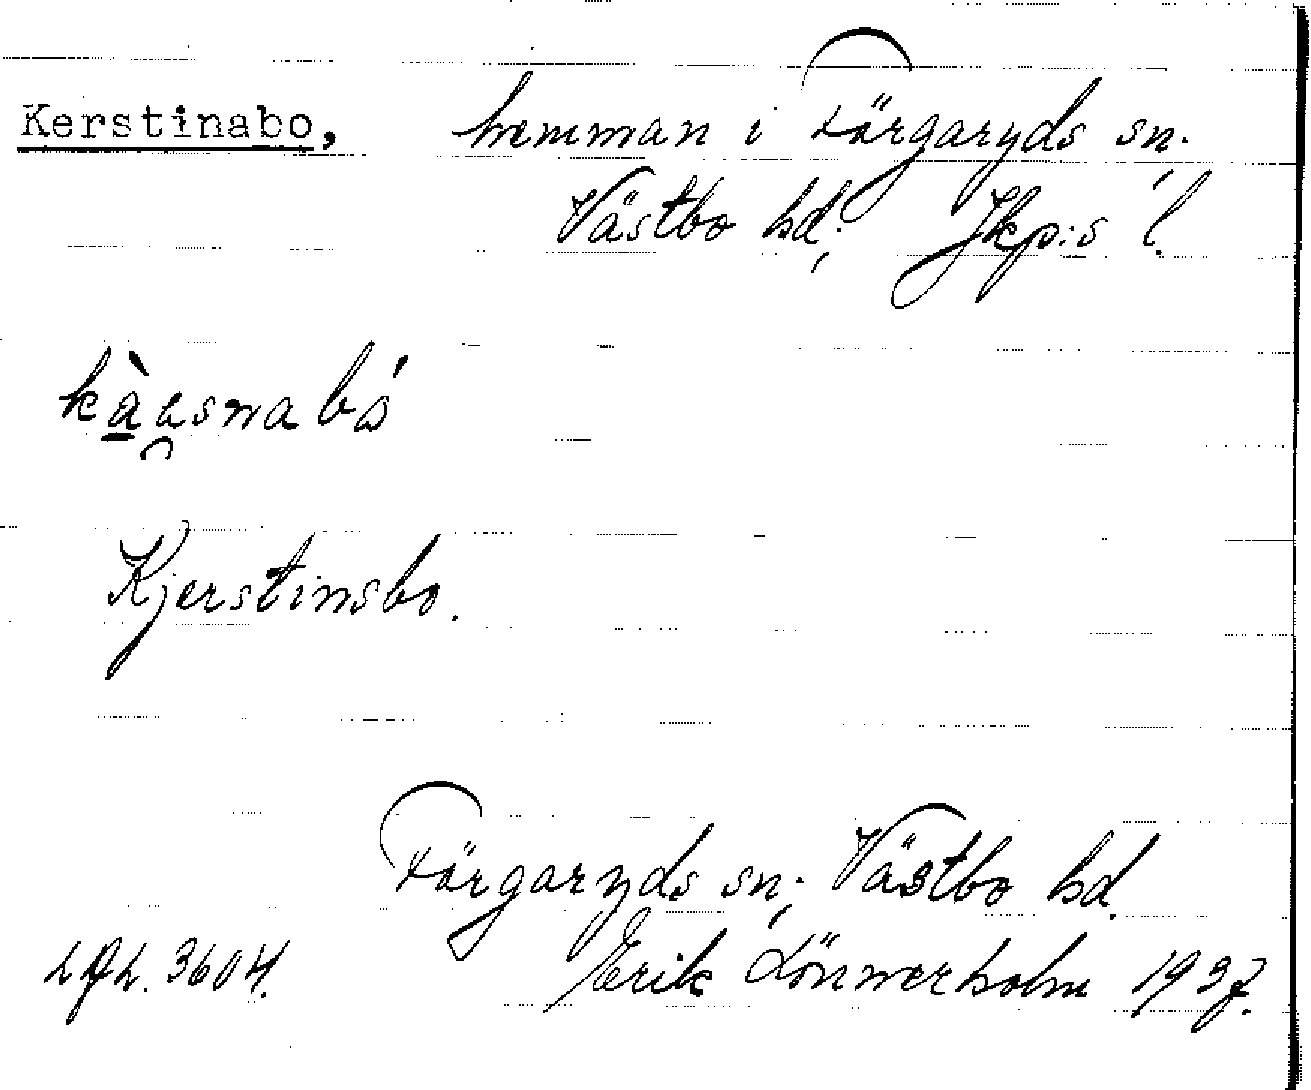 Kerstinabo, hemman i Färgaryds sn.
Västbo hd; Jkp:s l.
Kjerstinsbo.
Färgaryds sn; Västbo hd.
3604. Erik Lönnerholm 1937.